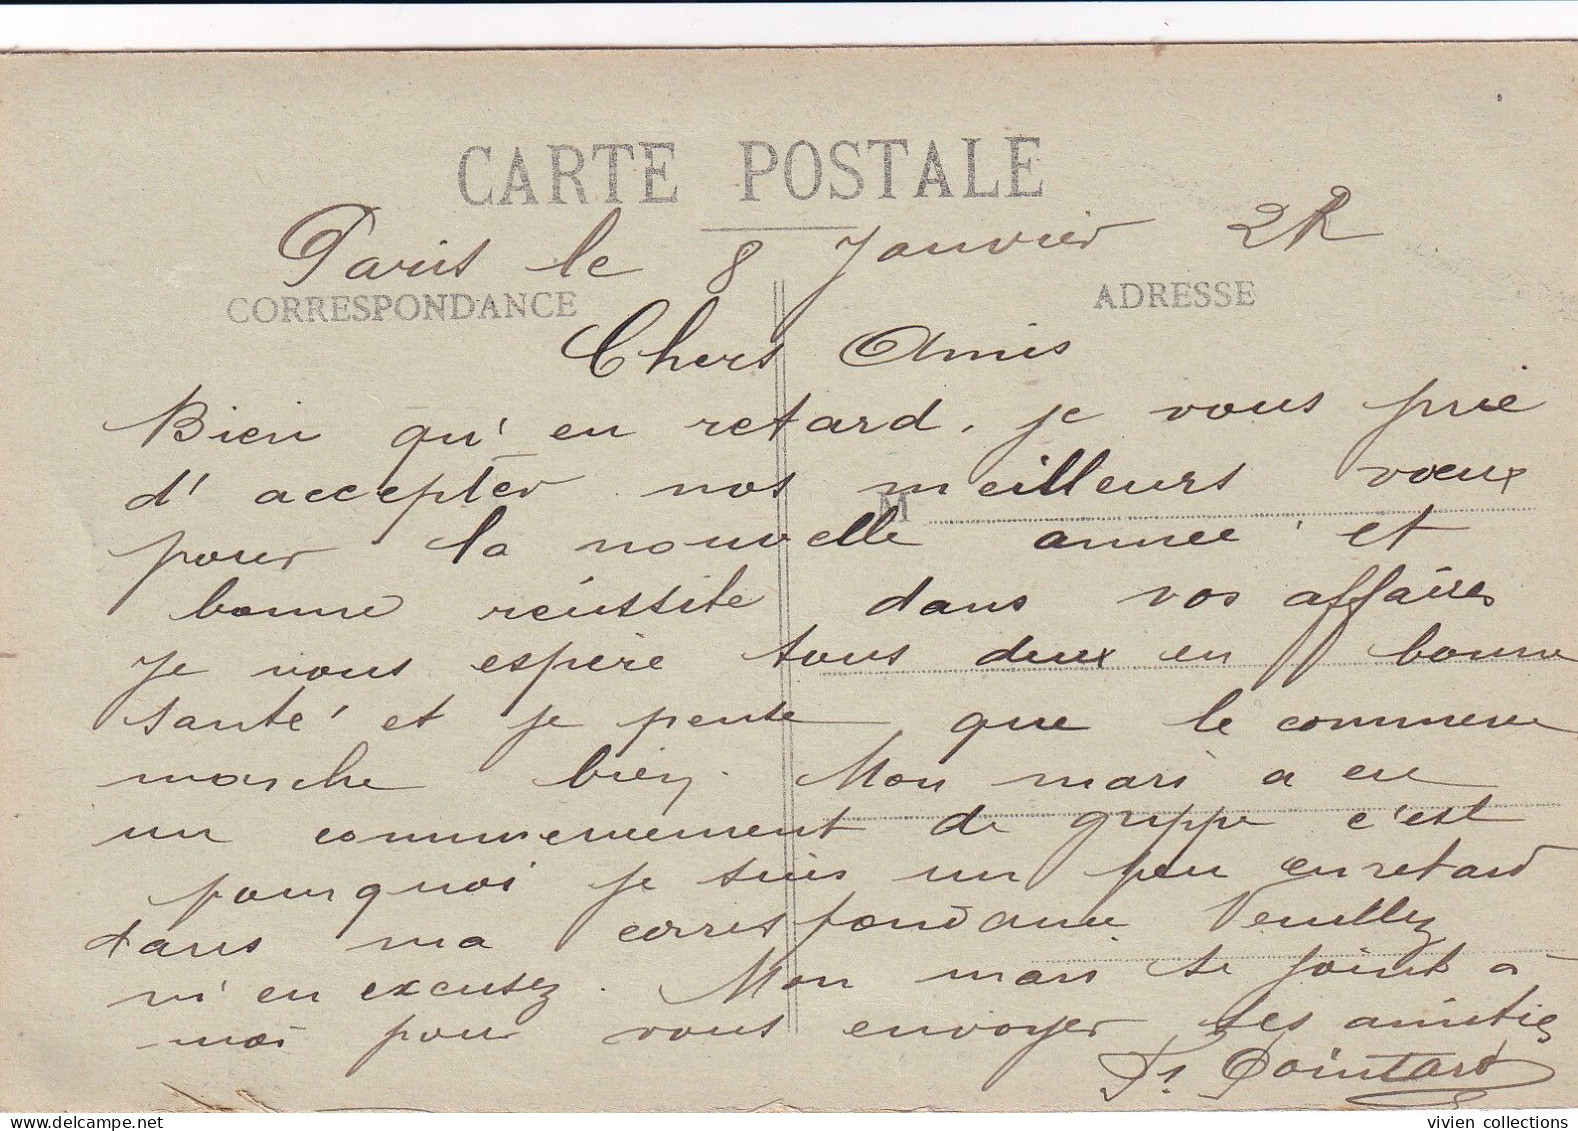 CARTE POSTALE
Paris le 8 Janvier
CORRESPONDANCE
ADRESSE
Chers Amis
Bien qu'en retard, je vous prie
d'accepter nos meilleurs vœux
M
pour la nouvelle année et
bonne réussite dans vos affaires
Je vous espère tous deux en bonne
santé et je pense que le commerce
marche bien. Mon mari a eu
un commencement de grippe c'est
pourquoi je suis un peu en retard
dans ma correspondance Veuillez
m'en excusez. Mon mari se joint à
moi pour vous envoyer ses amitiés
Pointard
vivien collections